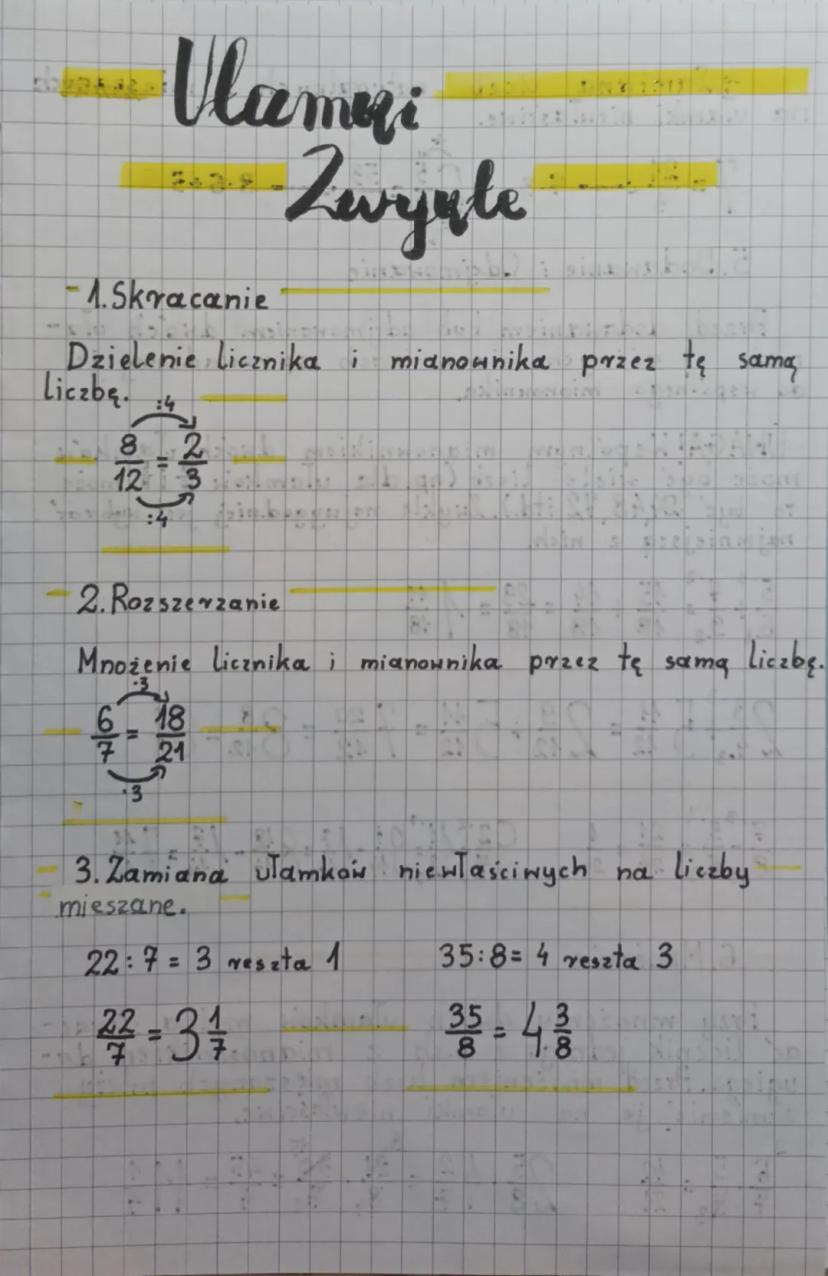 Ułamki
Zwykłe
- 1. Skracanie
Dzielenie licznika i mianownika przez tę samą
liczbę.
:4
8/12 = 2/3
:4
- 2. Rozszerzanie
Mnożenie licznika i mianownika przez tę samą liczbę.
·3
6/7 = 18/21
·3
- 3. Zamiana ułamków niewłaściwych na liczby
mieszane.
22:7 = 3 reszta 1 35:8 = 4 reszta 3
22/7 = 3 1/7 35/8 = 4 3/8